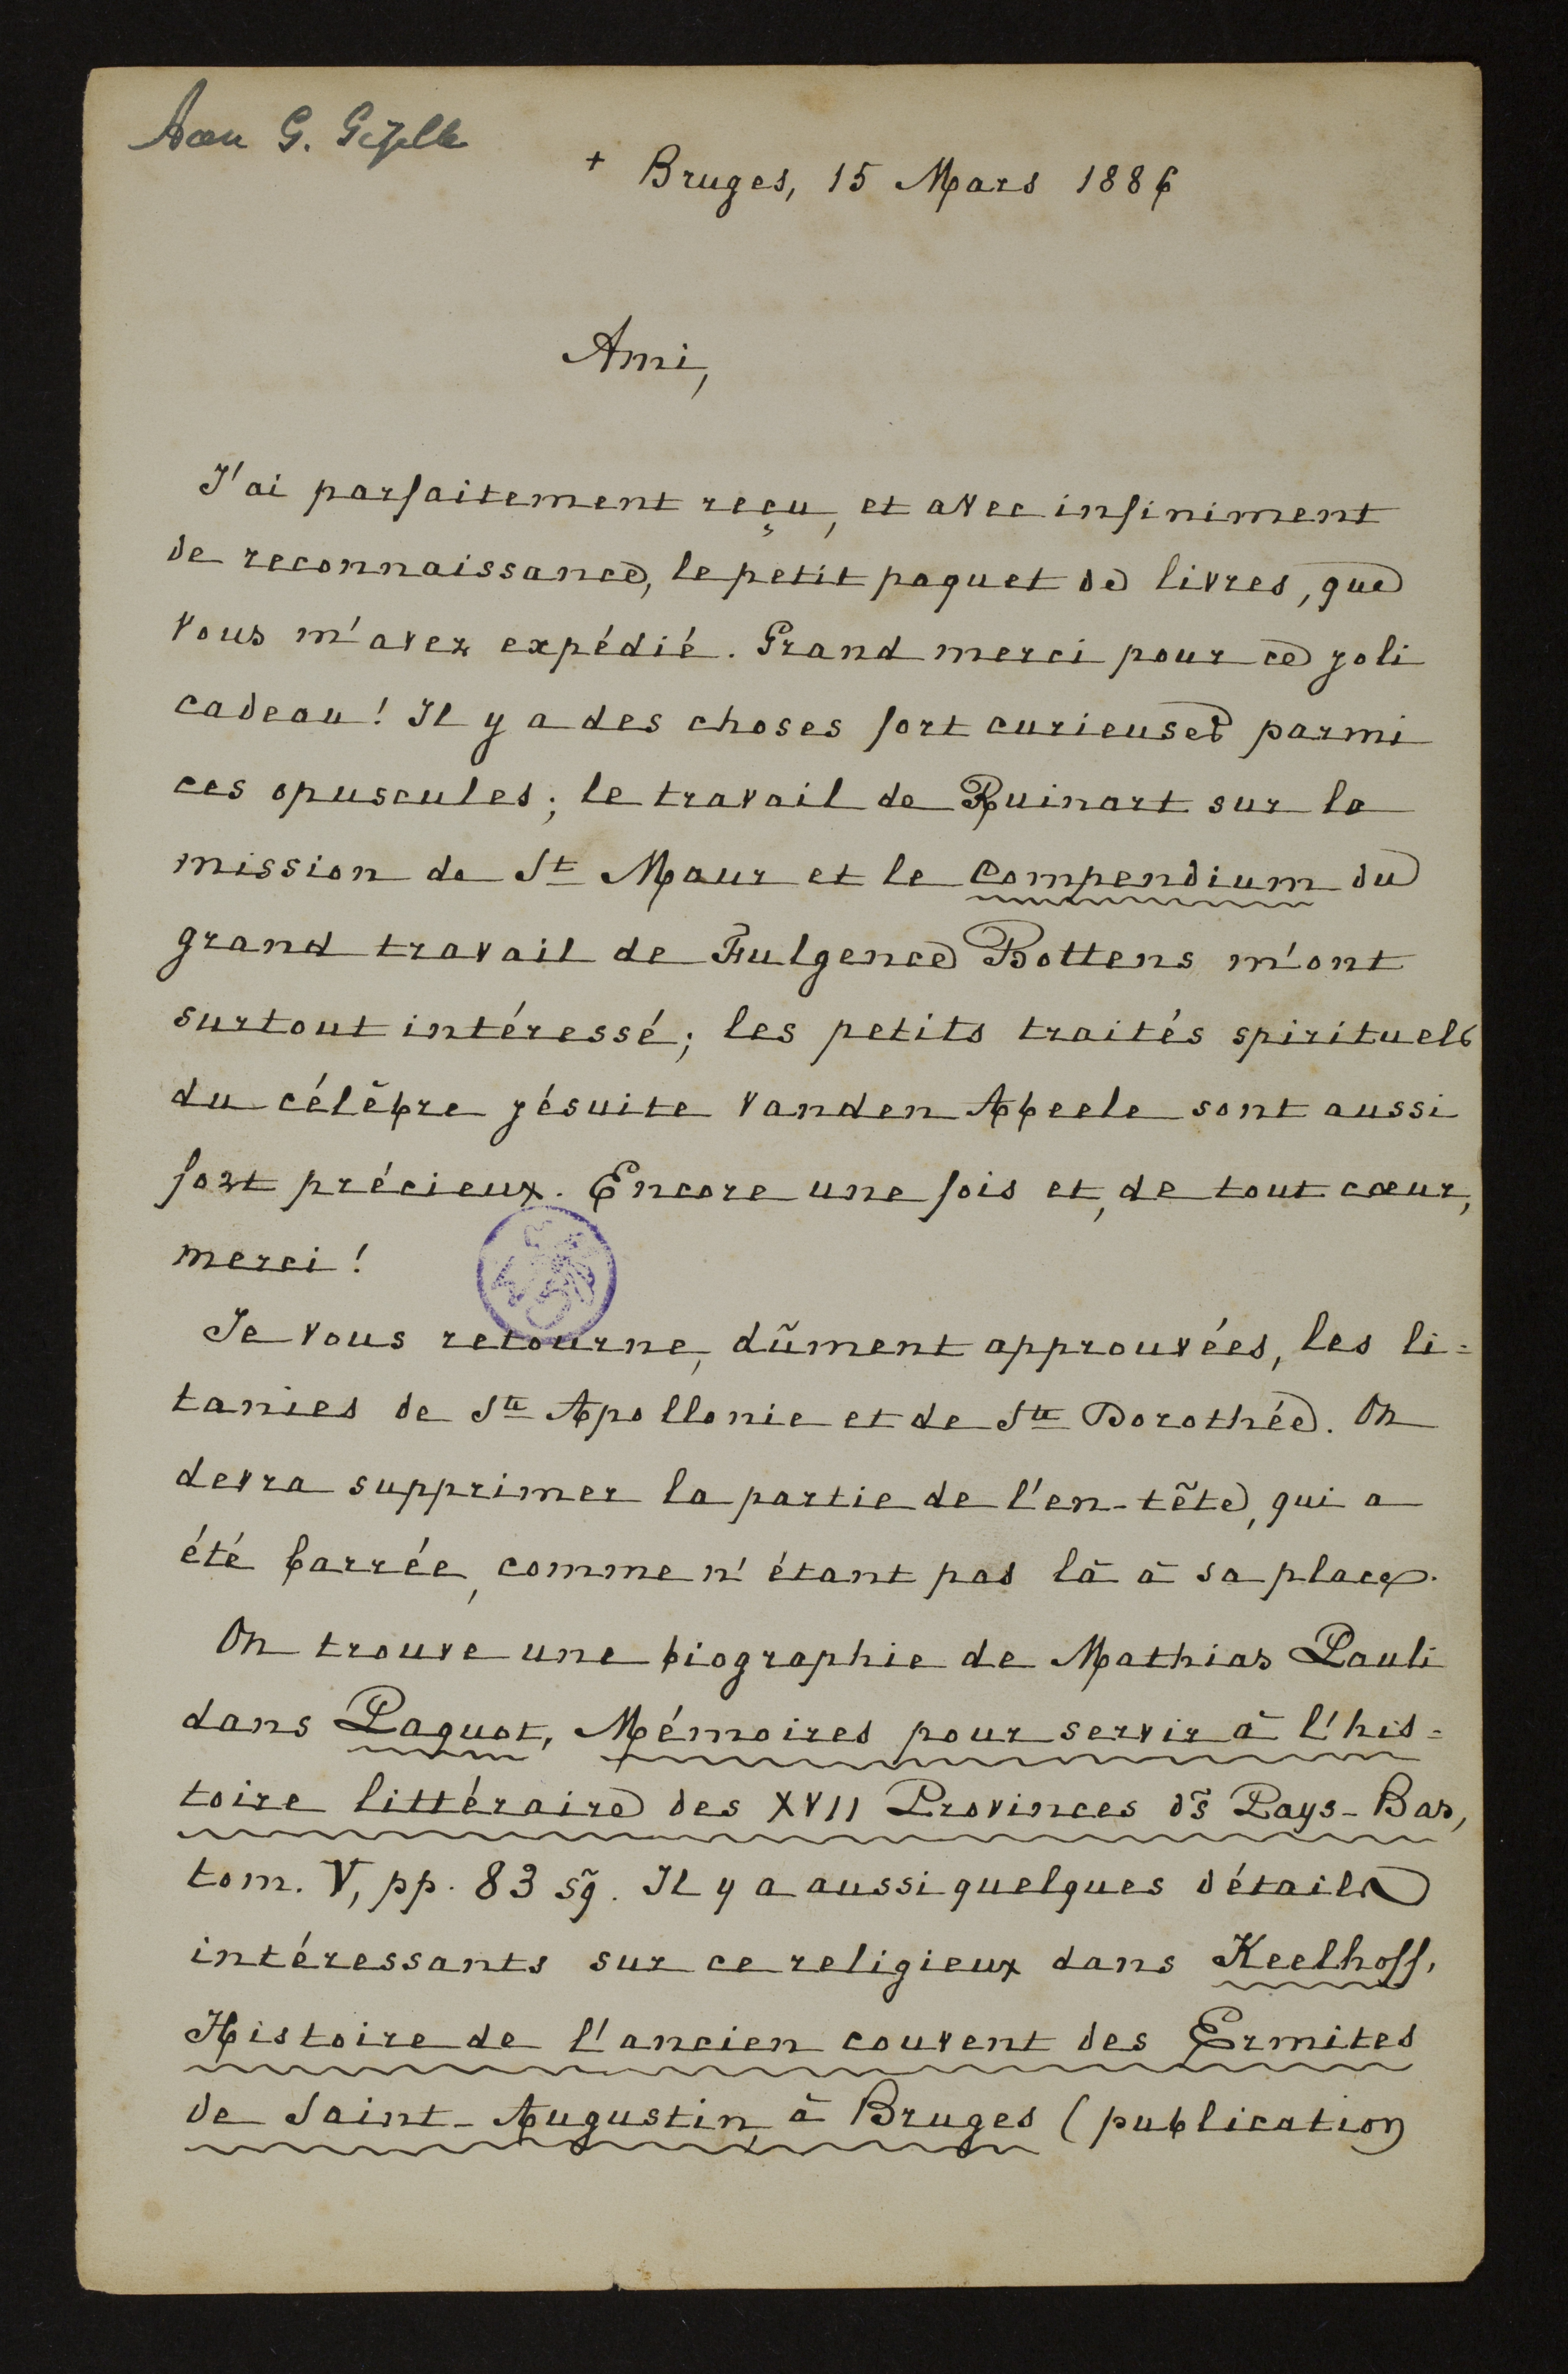 Aan G. Gezelle
+ Bruges, 15 Mars 1886
Ami,
J'ai parfaitement reçu, et avec infiniment
de reconnaissance, le petit paquet de livres, que
vous m'avez expédié. Grand merci pour ce joli
cadeau! Il y a des choses fort curieuses parmi
ces opuscules; le travail de Ruinart sur la
mission de St Maur et le Compendium du
grand travail de Fulgence Bottens m'ont
surtout intéressé; les petits traités spirituels
du célèbre jésuite vanden Abeele sont aussi
fort précieux. Encore une fois et, de tout cœur,
merci!
Je vous retourne, dûment approuvées, les li=
tanies de Ste Apollonie et de Ste Dorothée. On
devra supprimer la partie de l'en-tête, qui a
été barrée, comme n'étant pas là à sa place.
On trouve une biographie de Mathias Pauli
dans Paquot, Mémoires pour servir à l'his=
toire littéraire des XVII Provinces ds Pays-Bas,
tom. V, pp. 83 sq. Il y a aussi quelques détails
intéressants sur ce religieux dans Keelhoff,
Histoire de l'ancien couvent des Ermites
de Saint-Augustin, à Bruges (publication